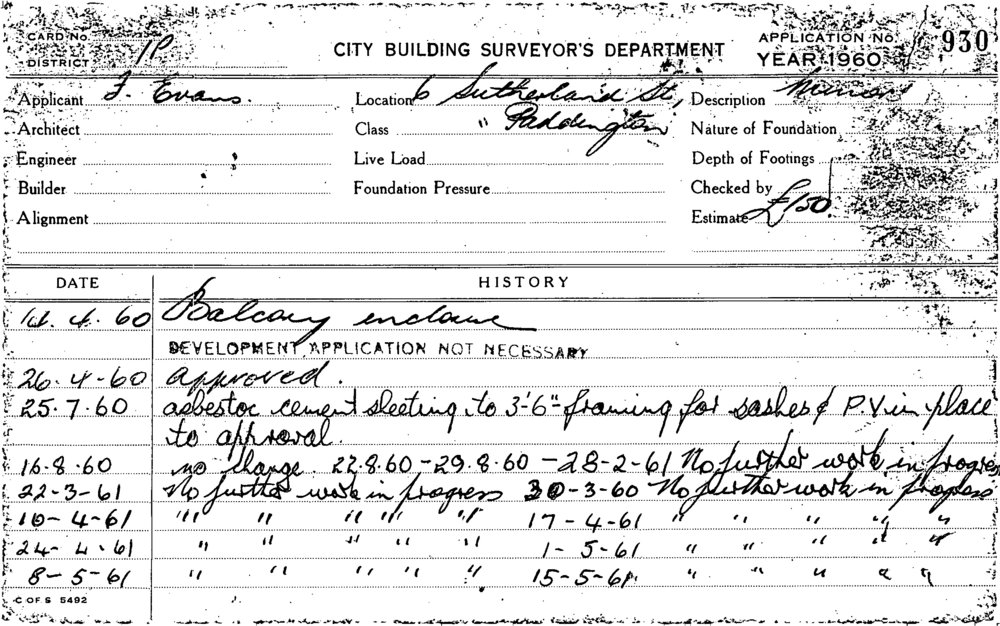 CARD No.
DISTRICT 1P
CITY BUILDING SURVEYOR'S DEPARTMENT
APPLICATION No. 930
YEAR 1960
Applicant F. Evans.
Location 6 Sutherland St,
Description
Architect
Class " Paddington
Nature of Foundation
Engineer
Live Load
Depth of Footings
Builder
Foundation Pressure
Checked by
Alignment
Estimate £150.
DATE HISTORY
14. 4. 60 Balcony enclosure
DEVELOPMENT APPLICATION NOT NECESSARY
26-4-60 approved.
25.7.60 asbestos cement sheeting to 3'-6" framing for sashes & P.V. in place
to approval.
16.8.60 no change. 22.8.60 - 29.8.60 - 28-2-61 No further work in progress
22-3-61 No further work in progress 30-3-60 No further work in progress
10-4-61 " " " " " 17-4-61 " " " " "
24-4-61 " " " " " 1-5-61 " " " " "
8-5-61 " " " " " 15-5-61. " " " " "
C OF S 5492